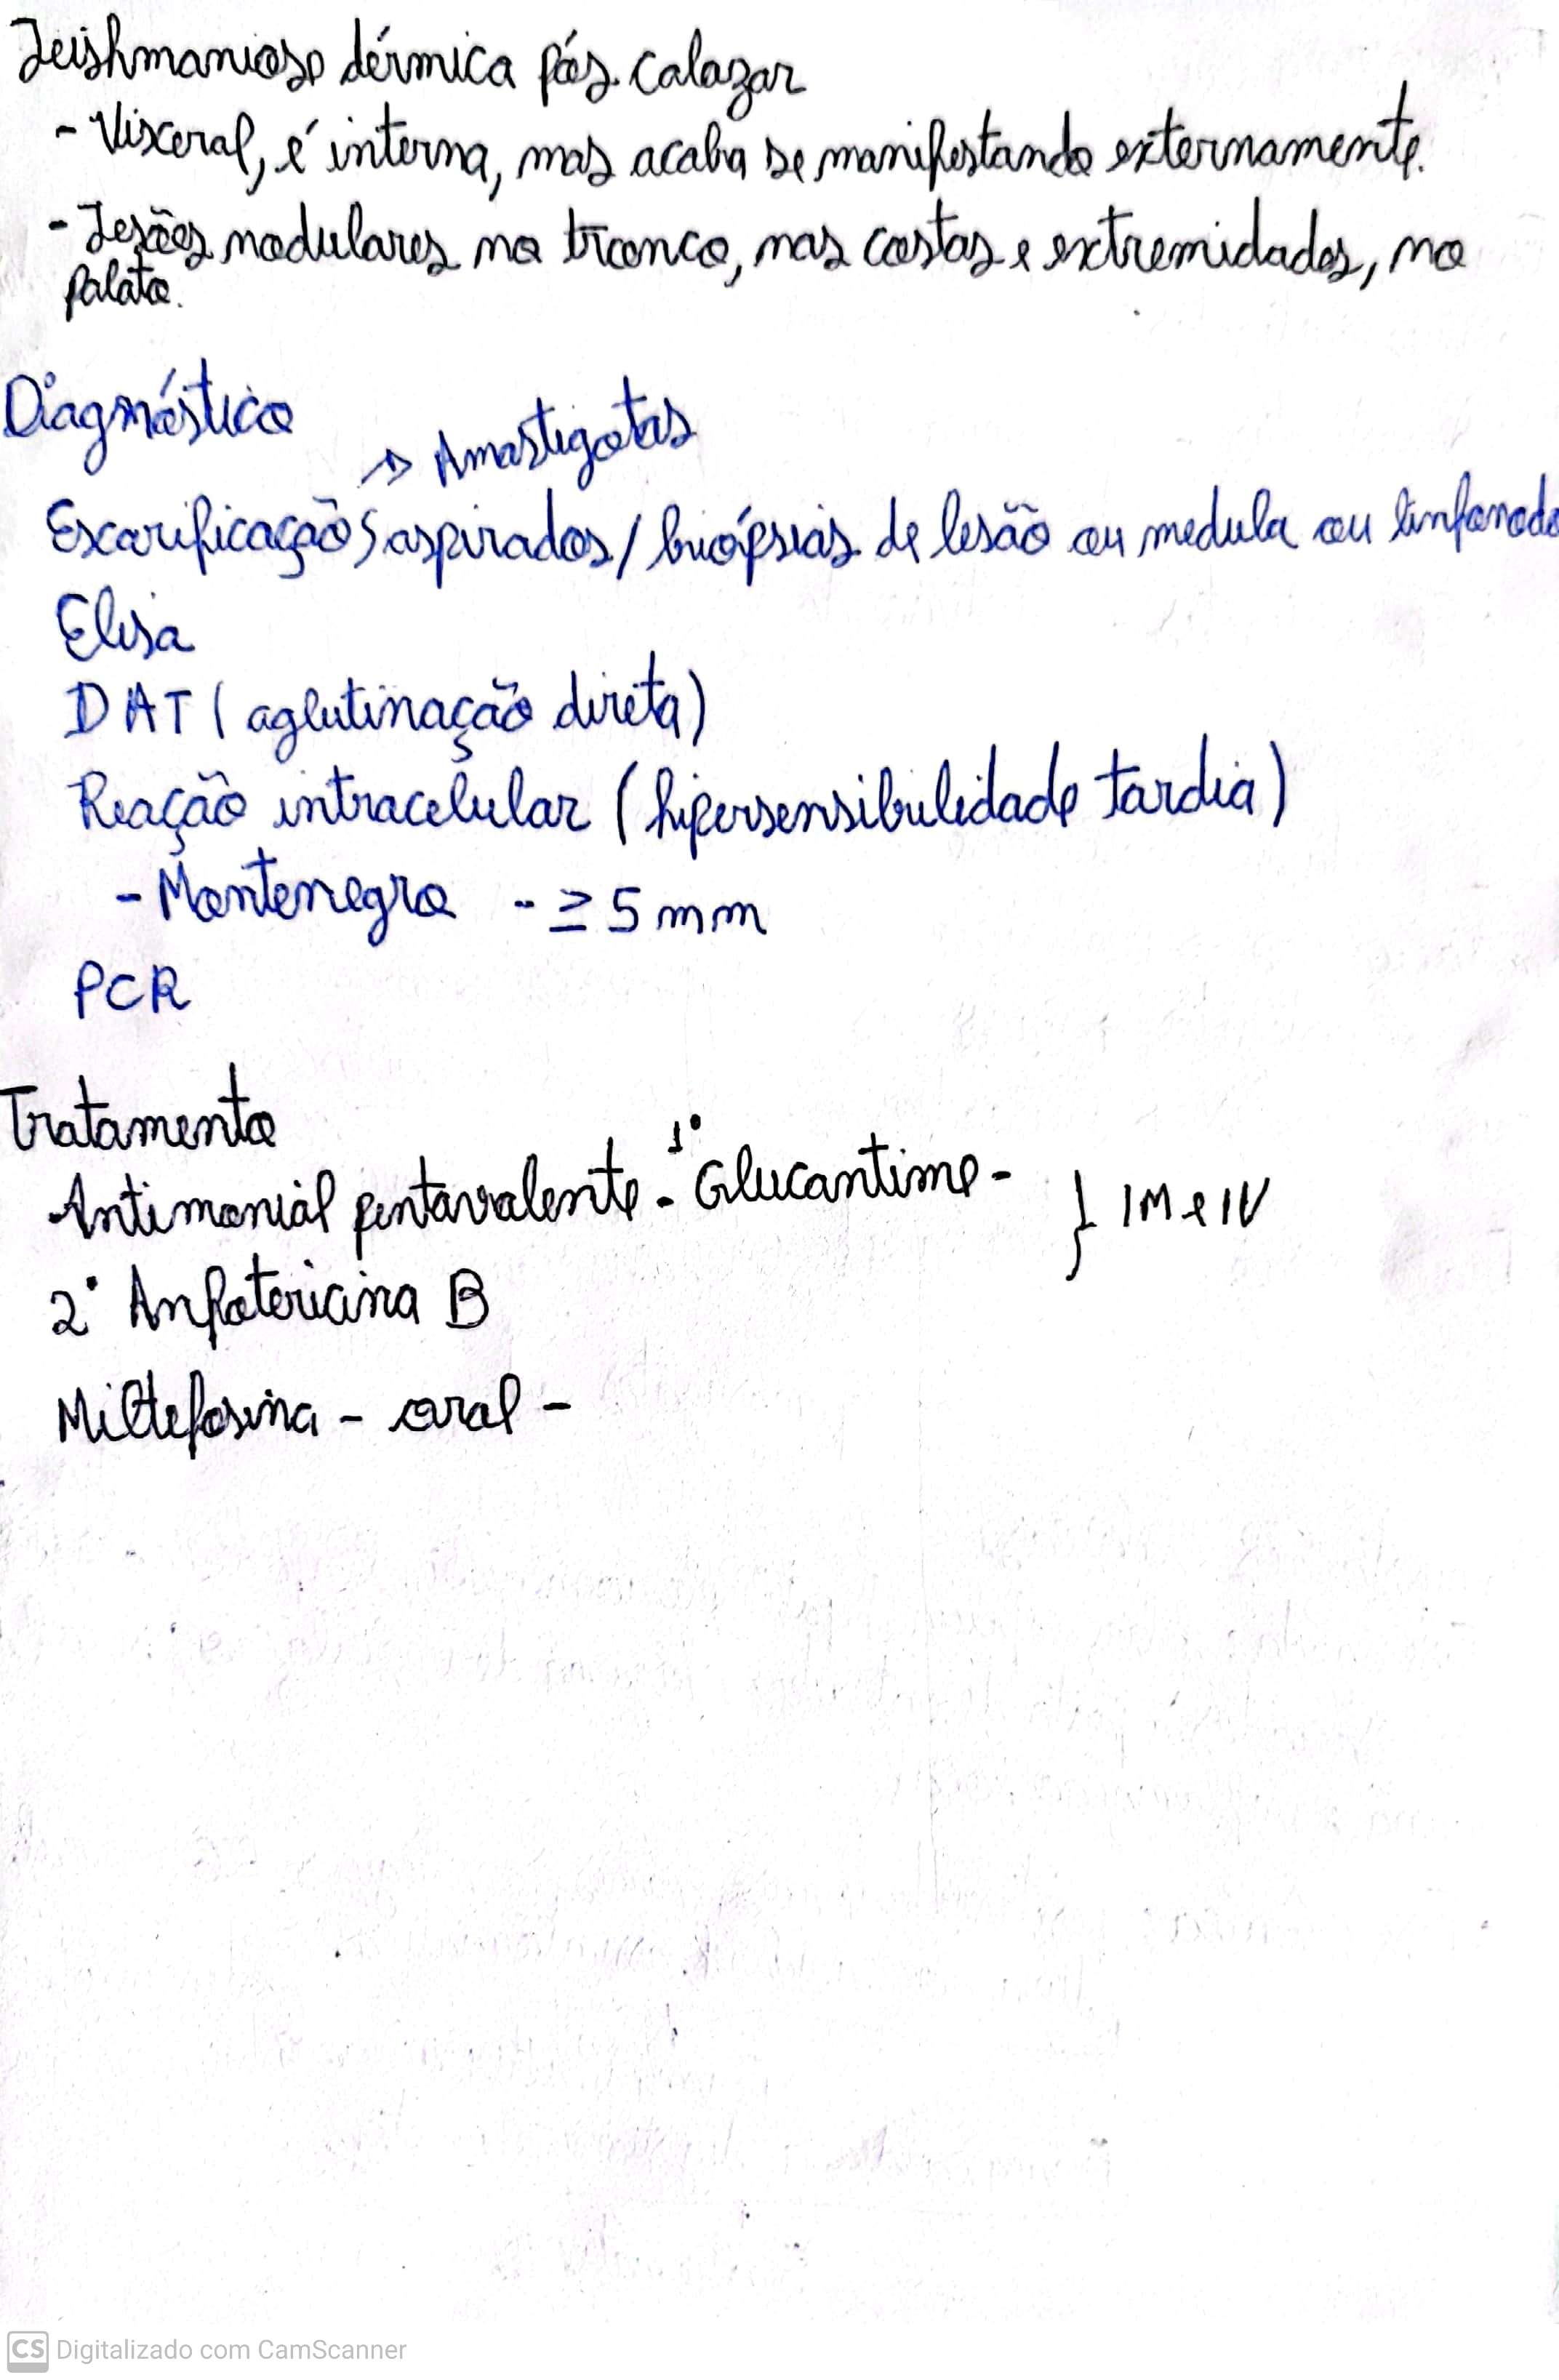 Leishmaniose dérmica pós calazar
- Visceral, é interna, mas acaba se manifestando externamente.
- Lesões nodulares no tronco, nas costas e extremidades, no
palato.
Diagnóstico
→ Amastigotas
Escarificação aspirados / biópsias de lesão ou medula ou linfonodo
Elisa
DAT (aglutinação direta)
Reação intracelular (hipersensibilidade tardia)
- Montenegro - ≥ 5 mm
PCR
Tratamento
Antimonial pentavalente - 1° Glucantime - } IM e IV
2° Anfotericina B
Miltefosina - oral -
CS Digitalizado com CamScanner